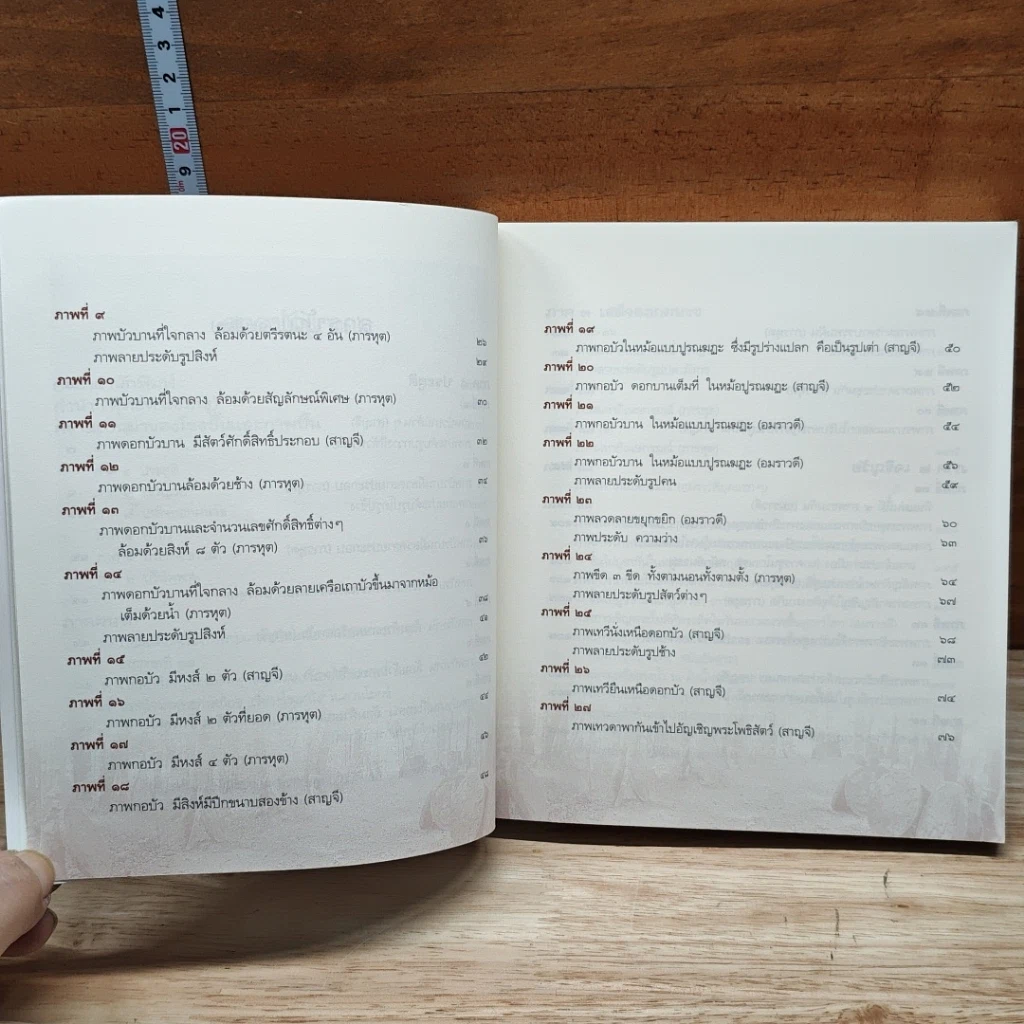 4
3
2
1
20
9
ภาพที่ ๙
ภาพบัวบานที่ใจกลาง ล้อมด้วยตรีรตนะ ๔ อัน (ภารหุต) ๒๖
ภาพลายประดับรูปสิงห์ ๒๙
ภาพที่ ๑๐
ภาพบัวบานที่ใจกลาง ล้อมด้วยสัญลักษณ์พิเศษ (ภารหุต) ๓๐
ภาพที่ ๑๑
ภาพดอกบัวบาน มีสัตว์ศักดิ์สิทธิ์ประกอบ (สาญจี) ๓๒
ภาพที่ ๑๒
ภาพดอกบัวบานล้อมด้วยช้าง (ภารหุต) ๓๔
ภาพที่ ๑๓
ภาพดอกบัวบานและจำนวนเลขศักดิ์สิทธิ์ต่างๆ
ล้อมด้วยสิงห์ ๘ ตัว (ภารหุต) ๓๖
ภาพที่ ๑๔
ภาพดอกบัวบานที่ใจกลาง ล้อมด้วยลายเครือเถาบัวขึ้นมาจากหม้อ
เต็มด้วยน้ำ (ภารหุต) ๓๘
ภาพลายประดับรูปสิงห์
ภาพที่ ๑๕
ภาพกอบัว มีหงส์ ๒ ตัว (สาญจี) ๔๒
ภาพที่ ๑๖
ภาพกอบัว มีหงส์ ๒ ตัวที่ยอด (ภารหุต) ๔๔
ภาพที่ ๑๗
ภาพกอบัว มีหงส์ ๔ ตัว (ภารหุต) ๔๖
ภาพที่ ๑๘
ภาพกอบัว มีสิงห์มีปีกขนาบสองข้าง (สาญจี) ๔๘
ภาพที่ ๑๙
ภาพกอบัวในหม้อแบบปูรณฆฏะ ซึ่งมีรูปร่างแปลก คือเป็นรูปเต่า (สาญจี) ๕๐
ภาพที่ ๒๐
ภาพกอบัว ดอกบานเต็มที่ ในหม้อปูรณฆฏะ (สาญจี) ๕๒
ภาพที่ ๒๑
ภาพกอบัวบาน ในหม้อแบบปูรณฆฏะ (อมราวดี) ๕๔
ภาพที่ ๒๒
ภาพกอบัวบาน ในหม้อแบบปูรณฆฏะ (อมราวดี) ๕๖
ภาพลายประดับรูปคน ๕๙
ภาพที่ ๒๓
ภาพลวดลายขยุกขยิก (อมราวดี) ๖๐
ภาพประดับ ความว่าง ๖๓
ภาพที่ ๒๔
ภาพขีด ๓ ขีด ทั้งตามนอนทั้งตามตั้ง (ภารหุต) ๖๔
ภาพลายประดับรูปสัตว์ต่างๆ ๖๗
ภาพที่ ๒๕
ภาพเทวีนั่งเหนือดอกบัว (สาญจี) ๖๘
ภาพลายประดับรูปช้าง ๗๓
ภาพที่ ๒๖
ภาพเทวียืนเหนือดอกบัว (สาญจี) ๗๔
ภาพที่ ๒๗
ภาพเทวดาพากันเข้าไปอัญเชิญพระโพธิสัตว์ (สาญจี) ๗๖